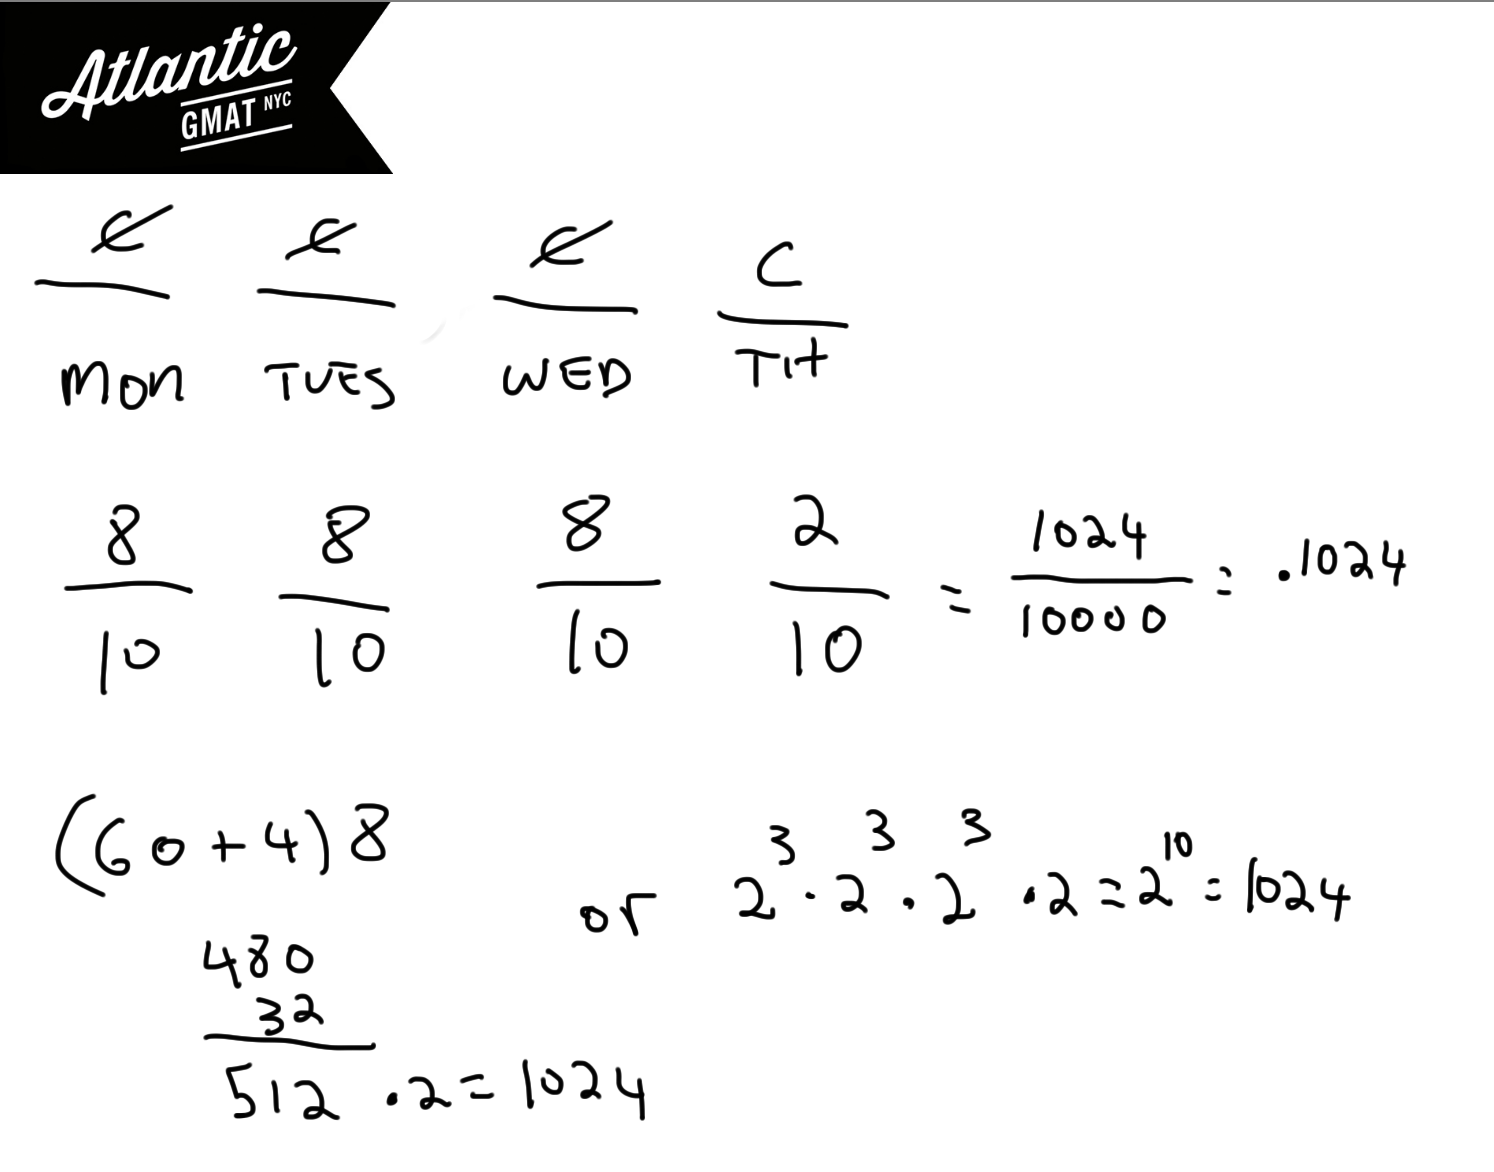 Atlantic
GMAT NYC
C C C C
MON TUES WED TH
8 8 8 2 1024
10 10 10 10 = 10000 = .1024
(60+4)8
or 2³·2³·2³·2=2¹⁰=1024
480
32
512 ·2=1024